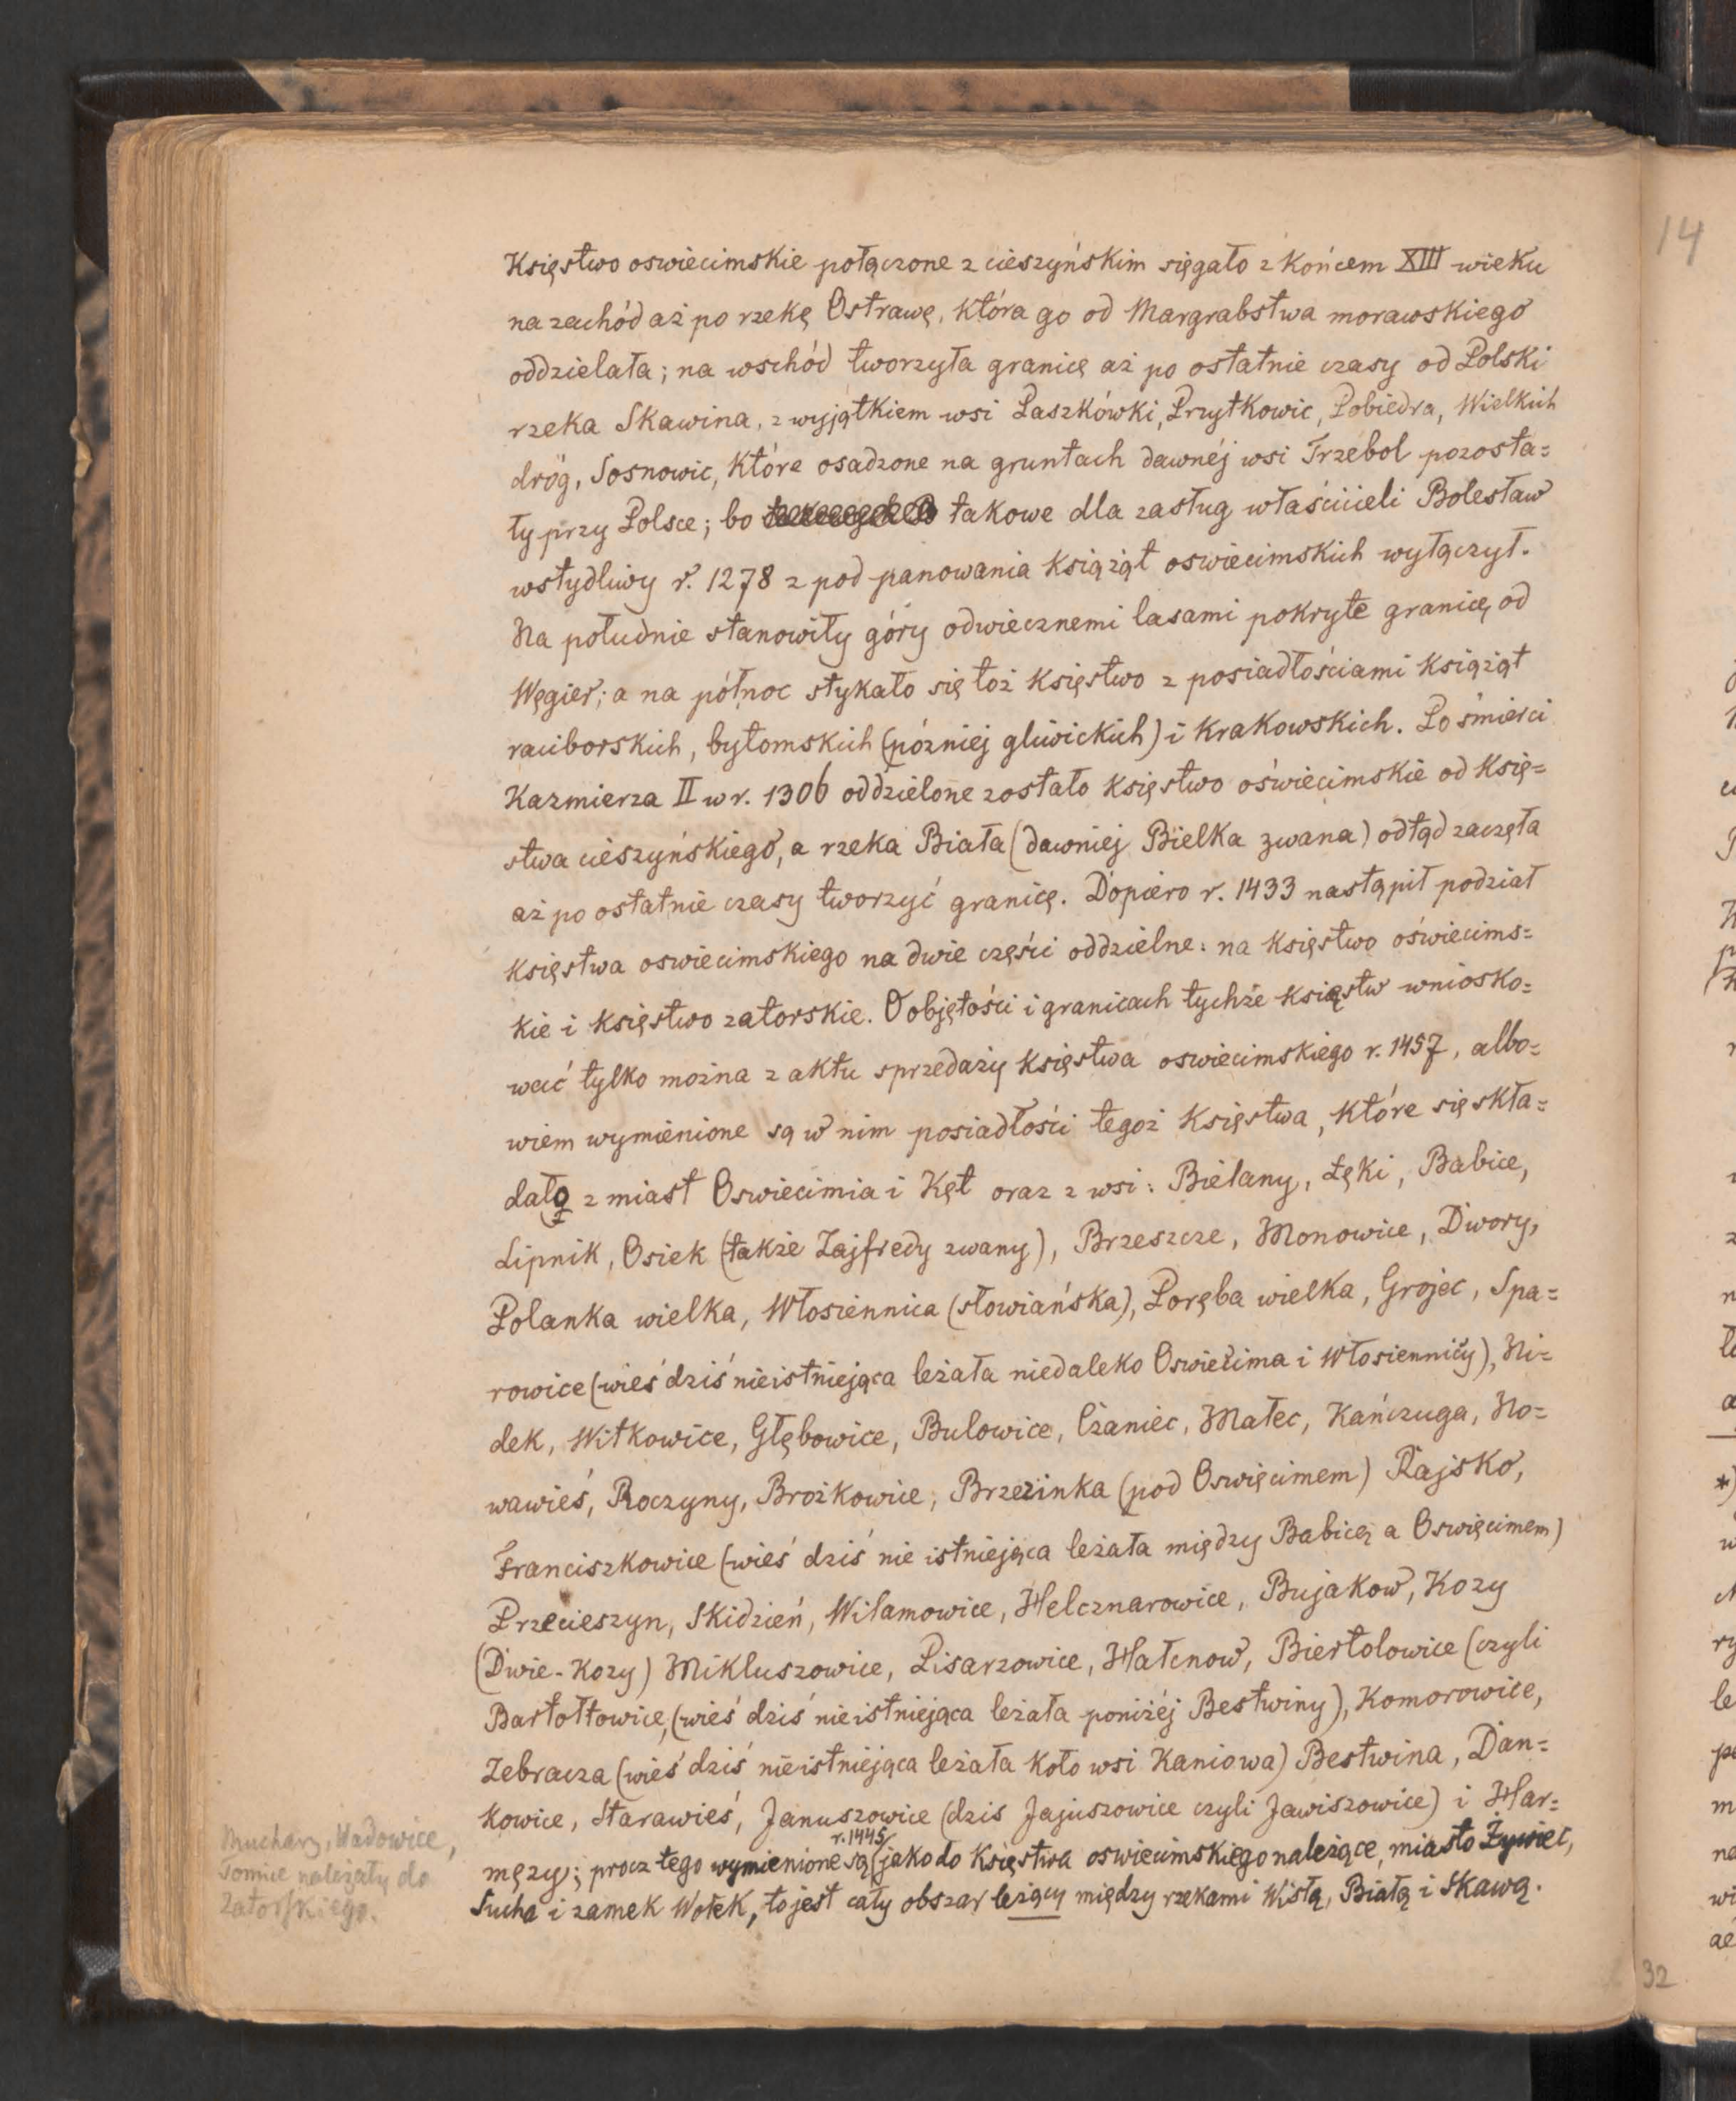 Księstwo oswiecimskie połączone z cieszyńskim sięgało z końcem XIII wieku
na zachód aż po rzekę Ostrawę, która go od Margrabstwa morawskiego
oddzielała; na wschód tworzyła granicę aż po ostatnie czasy od Polski
rzeka Skawina, z wyjątkiem wsi Paszkówki, Przytkowic, Pobiedra, Wielkich
dróg, Sosnowic, które osadzone na gruntach dawnéj wsi Trzebol pozosta=
ły przy Polsce; bo takowe dla zasług właścicieli Bolesław
wstydliwy r. 1278 z pod panowania książąt oswiecimskich wyłączył.
Na południe stanowiły góry odwiecznemi lasami pokryte granicę od
Węgier; a na północ stykało się toż księstwo z posiadłościami książąt
raciborskich, bytomskich (póżniej gliwickich) i krakowskich. Po śmierci
Kazmierza II w r. 1306 oddzielone zostało księstwo oświecimskie od księ=
stwa cieszyńskiego, a rzeka Biała (dawniej Bielka zwana) odtąd zaczęła
aż po ostatnie czasy tworzyć granicę. Dopiero r. 1433 nastąpił podział
księstwa oswiecimskiego na dwie części oddzielne: na księstwo oświecims=
kie i księstwo zatorskie. O objętości i granicach tychże księstw wniosko=
wać tylko można z aktu sprzedaży księstwa oswiecimskiego r. 1457, albo=
wiem wymienione są w nim posiadłości tegoż księstwa, które się skła=
dało z miast Oswiecimia i Kęt oraz z wsi: Bielany, Łęki, Babice,
Lipnik, Osiek (także Zajfredy zwany), Brzeszcze, Monowice, Dwory,
Polanka wielka, Włosiennica (słowiańska), Poręba wielka, Grojec, Spa=
rowice (wieś dziś nieistniejąca leżała niedaleko Oswiecima i Włosiennicy), Ni=
dek, Witkowice, Głębowice, Bulowice, Czaniec, Malec, Kańczuga, No=
wawieś, Roczyny, Brożkowice, Brzezinka (pod Oswięcimem) Rajsko,
Franciszkowice (wieś dziś nie istniejąca leżała między Babicą a Oswięcimem)
Przecieszyn, Skidzień, Wilamowice, Helcznarowice, Bujakow, Kozy
(Dwie-Kozy) Mikluszowice, Pisarzowice, Hałcnow, Biertolowice (czyli
Bartołtowice, (wieś dziś nieistniejąca leżała poniżéj Bestwiny), Komorowice,
Zebracza (wieś dziś nieistniejąca leżała koło wsi Kaniowa) Bestwina, Dan=
kowice, Starawieś, Januszowice (dzis Jajuszowice czyli Jawiszowice) i Har=
męzy; procz tego wymienione są r. 1445 jako do księstwa oswiecimskiego należące, miasto Żywiec,
Sucha i zamek Wołek, to jest cały obszar leżący między rzekami Wisłą, Białą i Skawą.
Mucharz, Wadowice,
Tomice należały do
Zatorskiego.
14
32